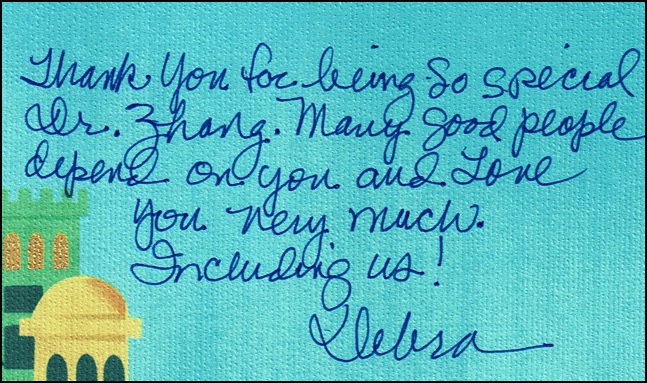 Thank you for being so special
Dr. Zhang. Many good people
depend on you and Love
you very much.
Including us!
Debra